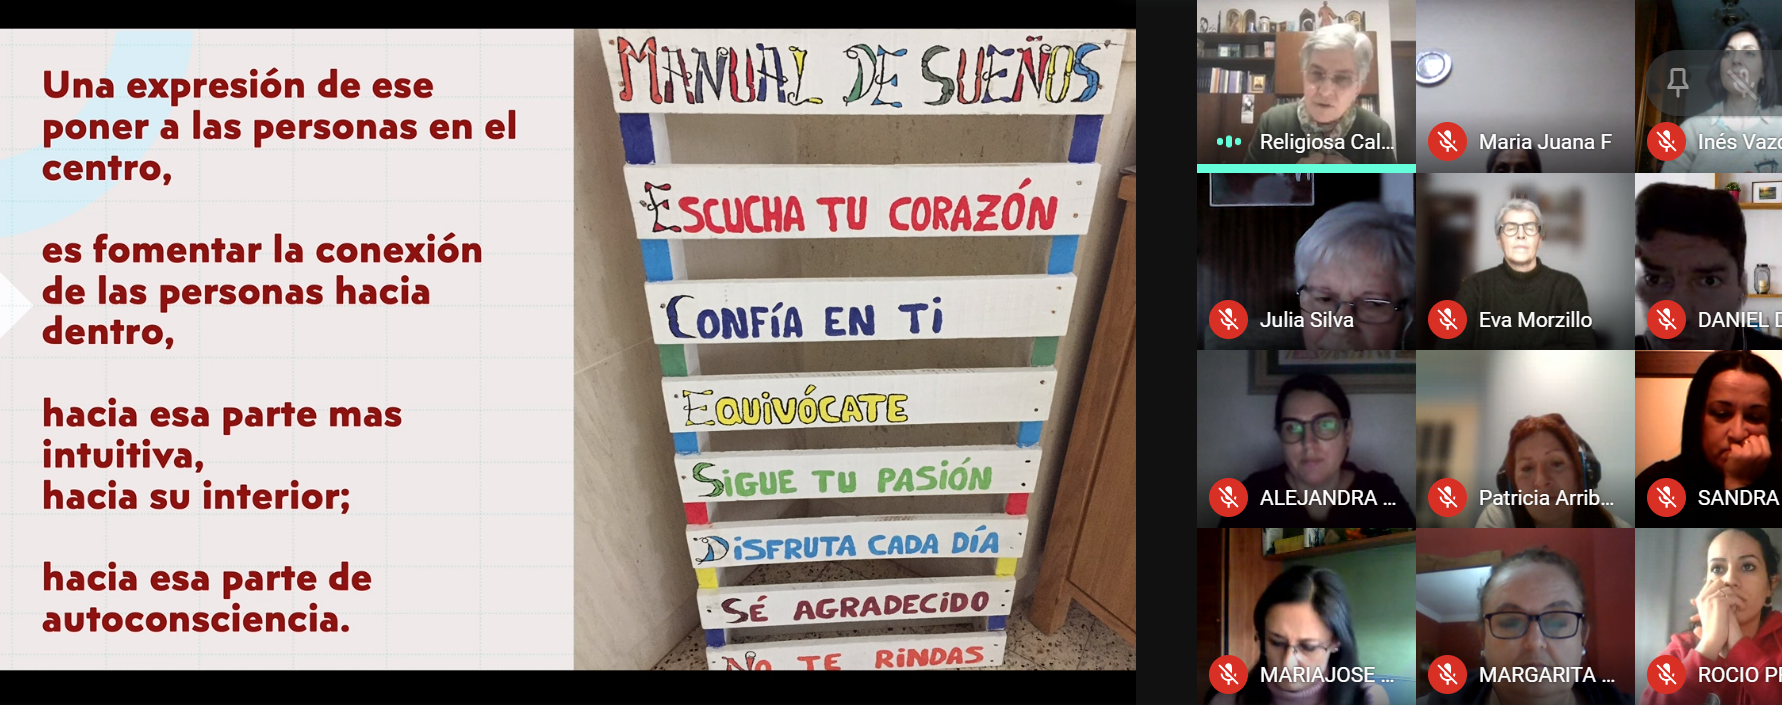 Una expresión de ese
poner a las personas en el
centro,
es fomentar la conexión
de las personas hacia
dentro,
hacia esa parte mas
intuitiva,
hacia su interior;
hacia esa parte de
autoconsciencia.
MANUAL DE SUEÑOS
ESCUCHA TU CORAZÓN
CONFÍA EN Ti
EQUIVÓCATE
SiGUE TU PASiÓN
DiSFRUTA CADA DÍA
SÉ AGRADECiDO
No TE RiNDAS
Religiosa Cal...
Maria Juana F
Inés Vaz
Julia Silva
Eva Morzillo
DANIEL D
ALEJANDRA ...
Patricia Arrib...
SANDRA
MARIAJOSE ...
MARGARITA ...
ROCIO P